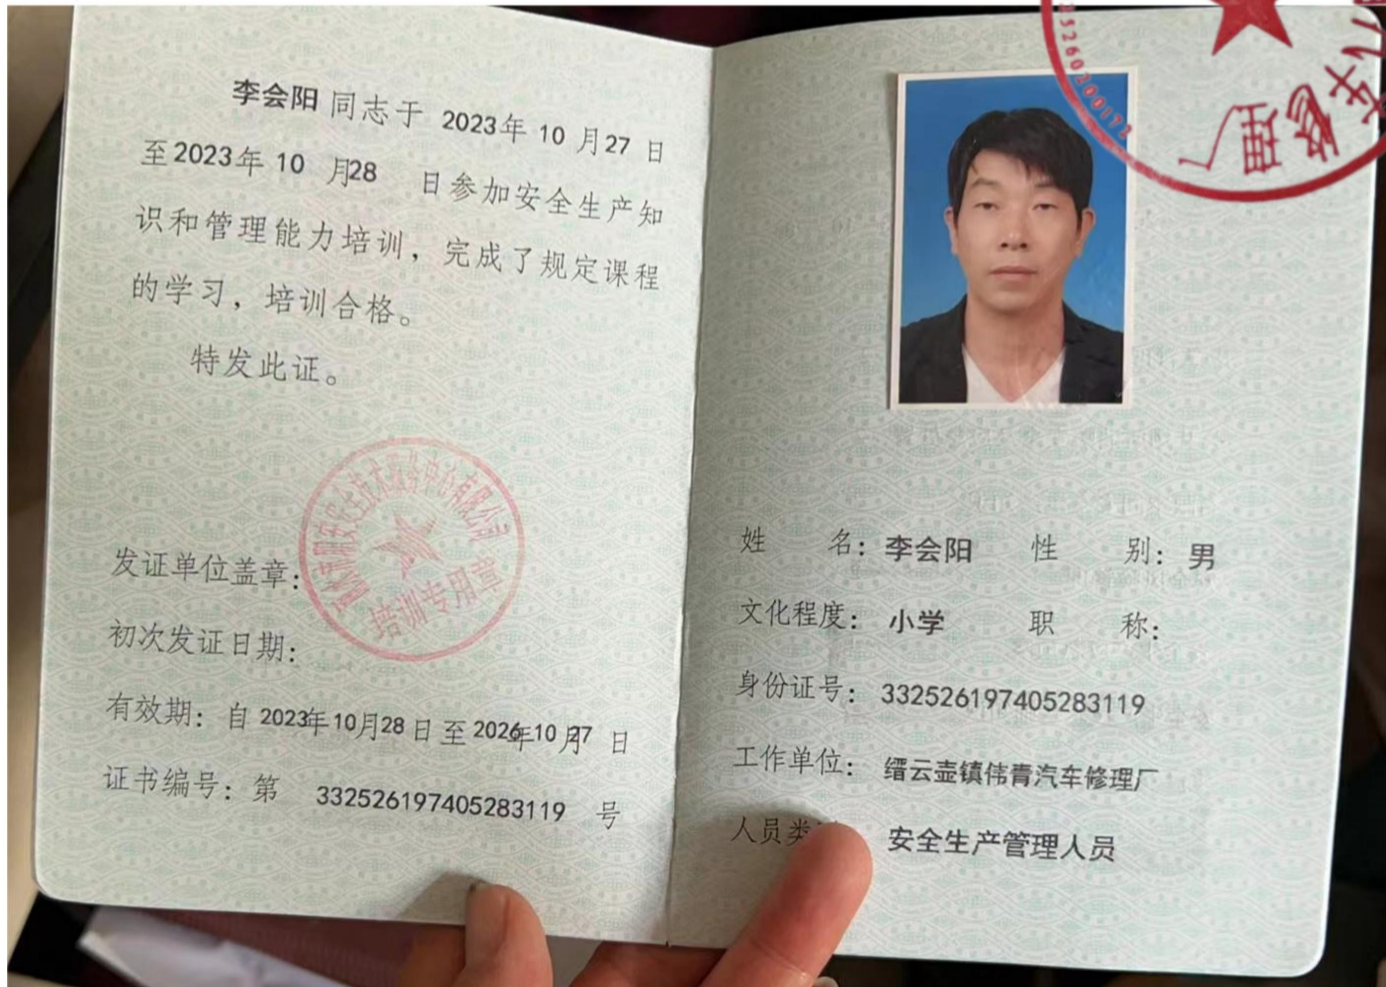 李会阳 同志于 2023年 10 月27 日
至2023年 10 月28 日参加安全生产知
识和管理能力培训，完成了规定课程
的学习，培训合格。
特发此证。
培训专用章
发证单位盖章：
初次发证日期：
有效期：自 2023年10月28日 至 2026年10月27 日
证书编号：第 332526197405283119 号
修理厂
姓 名：李会阳 性 别：男
文化程度：小学 职 称：
身份证号：332526197405283119
工作单位：缙云壶镇伟青汽车修理厂
人员类 安全生产管理人员